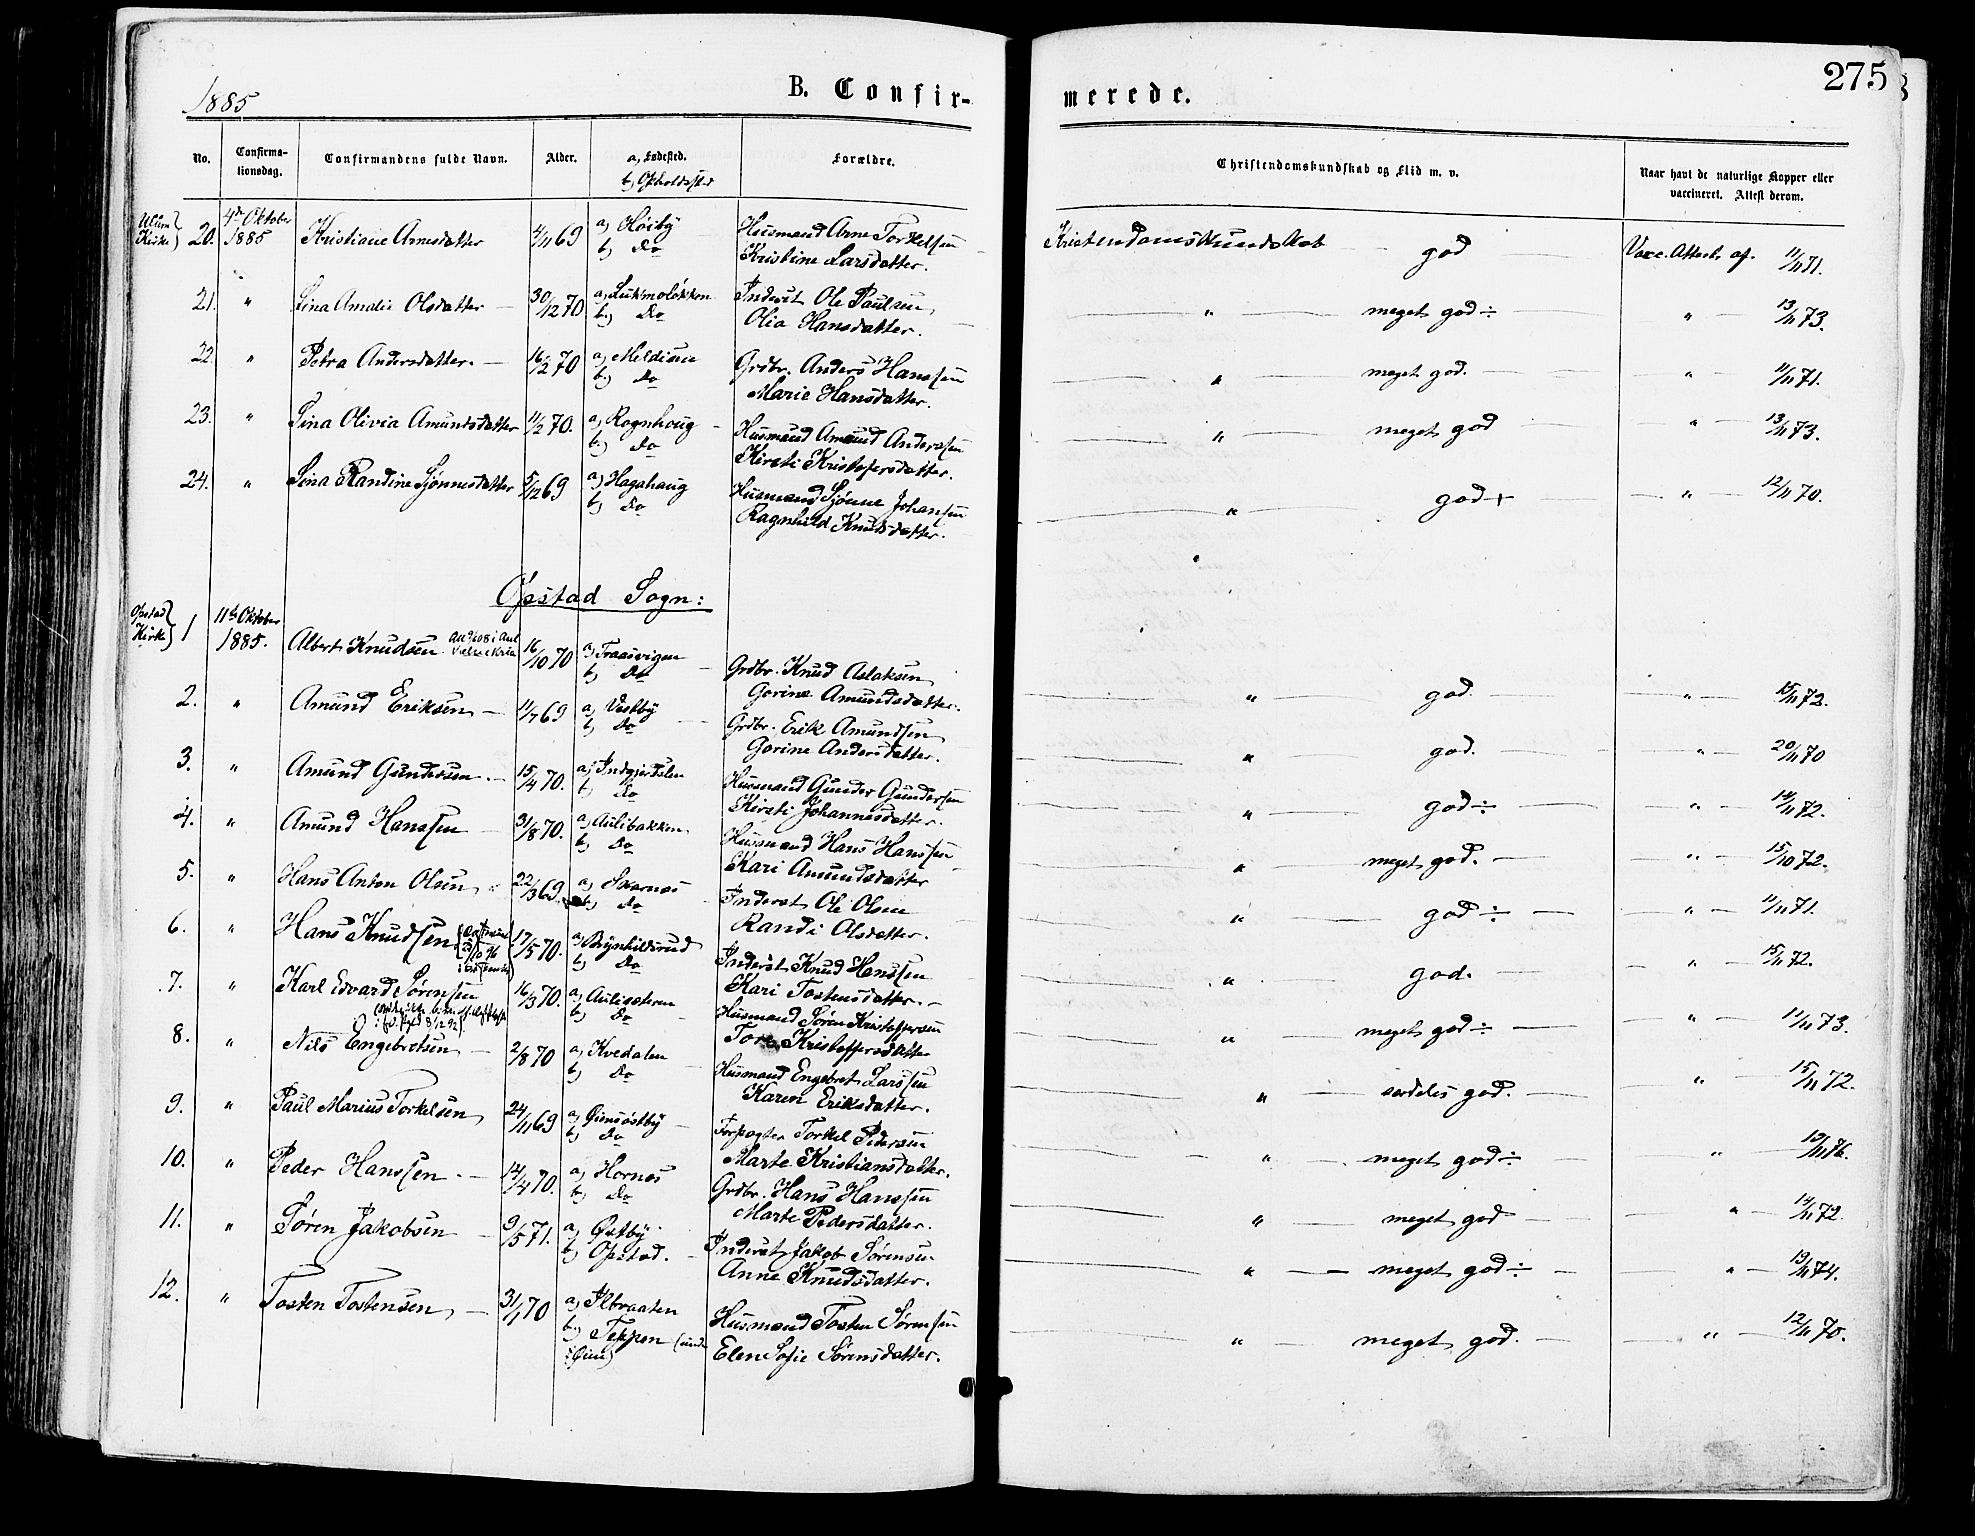 1885
B. Confir-
merede.
275
No.
Confirma-
tionsdag.
Confirmandens fulde Navn.
Alder.
a, Fødested.
b, Opholdssted
Forældre.
Christendomskundskab og Flid m. v.
Naar havt de naturlige Kopper eller
vaccineret. Attest derom.
Ullern Kirke } 20. 4de Oktober 1885 Kristiane Arnesdatter 4/11 69 a) Høiby b) Do Husmand Arne Torkelsen Kristine Larsdatter. Kristendomskundskab god Vacc. Attest af 11/11 71.
21. " Lina Amalie Olsdatter — 30/12 70 a) b) Do Inderst Ole Paulsen, Olia Hansdatter. " meget god ÷ " 13/11 73.
22. " Petra Andersdatter. — 16/2 70 a) Meldisen b) Do Grdbr. Anders Hanssen Marie Hansdatter. " meget god. " 11/11 71.
23. " Tina Olivia Amundsdatter 11/2 70. a) Rognhoug b) Do Husmand Amund Anderssen Kirsti Kristofersdatter. " meget god " 13/11 73.
24. " Lina Randine Sjønnesdatter 5/12 69 a) Hagahaug b) Do Husmand Sjønne Johanssen Ragnhild Knudsdatter. " god + " 12/11 70.
Opstad Sogn:
Opstad Kirke } 1 11te Oktober 1885. Albert Knudsen 16/10 70 a) Traasvigen b) Do Grdbr. Knud Aslaksen, Gorine Amundsdatter. " god. " 15/11 72.
2. " Amund Eriksen — 11/7 69 a) Vestby b) Do Grdbr. Erik Amundsen, Gorine Andersdatter. " god. " 20/11 70
3. " Amund Gundersen. — 15/4 70. a) b) Do Husmand Gunder Gundersen Kirsti Johannesdatter. " god ÷ " 14/11 72.
4. " Amund Hanssen — 31/8 70. a) Aulibakken b) Do Husmand Hans Hanssen Kari Amundsdatter " meget god. " 15/10 72.
5. " Hans Anton Olsen 22/3 69. a) Skarnes b) Do Inderst Ole Olsen Randi Olsdatter. " god ÷ " 11/11 71.
6. " Hans Knudsen 17/5 70. a) Brynhildsrud b) Do Inderst Knud Hanssen Kari Tostensdatter. " god. " 15/11 72.
7. " Karl Edvard Sørensen 16/3 70. a) b) Do Husmand Søren Kristoffersen Tore Kristoffersdatter " meget god ÷ " 11/11 73.
8. " Nils Engebretsen — 2/8 70 a) Kvedalen b) Do Husmand Engebret Larssen Karen Eriksdatter. " særdeles god. " 15/11 72.
9. " Paul Marius Torkelsen 24/11 69 a) Øiensøstby b) Do Forpagter Torkel Pedersen Marte Kristiansdatter. " meget god ÷ " 76.
10. " Peder Hanssen. — 14/4 70. a) Hornes b) Do Grdbr. Hans Hanssen Marte Pedersdatter. " meget god " 14/11 72.
11. " Søren Jakobsen 9/5 71. a) Østby b) Opstad. Inderst Jakob Sørensen Anne Knudsdatter. " meget god ÷ " 19/11 74.
12. " Tosten Tostensen — 31/1 70 a) Ilbraaten b) Teppen (under Øien) Husmand Tosten Sørensen Elen Sofie Sørensdatter. " meget god. " 12/11 70.